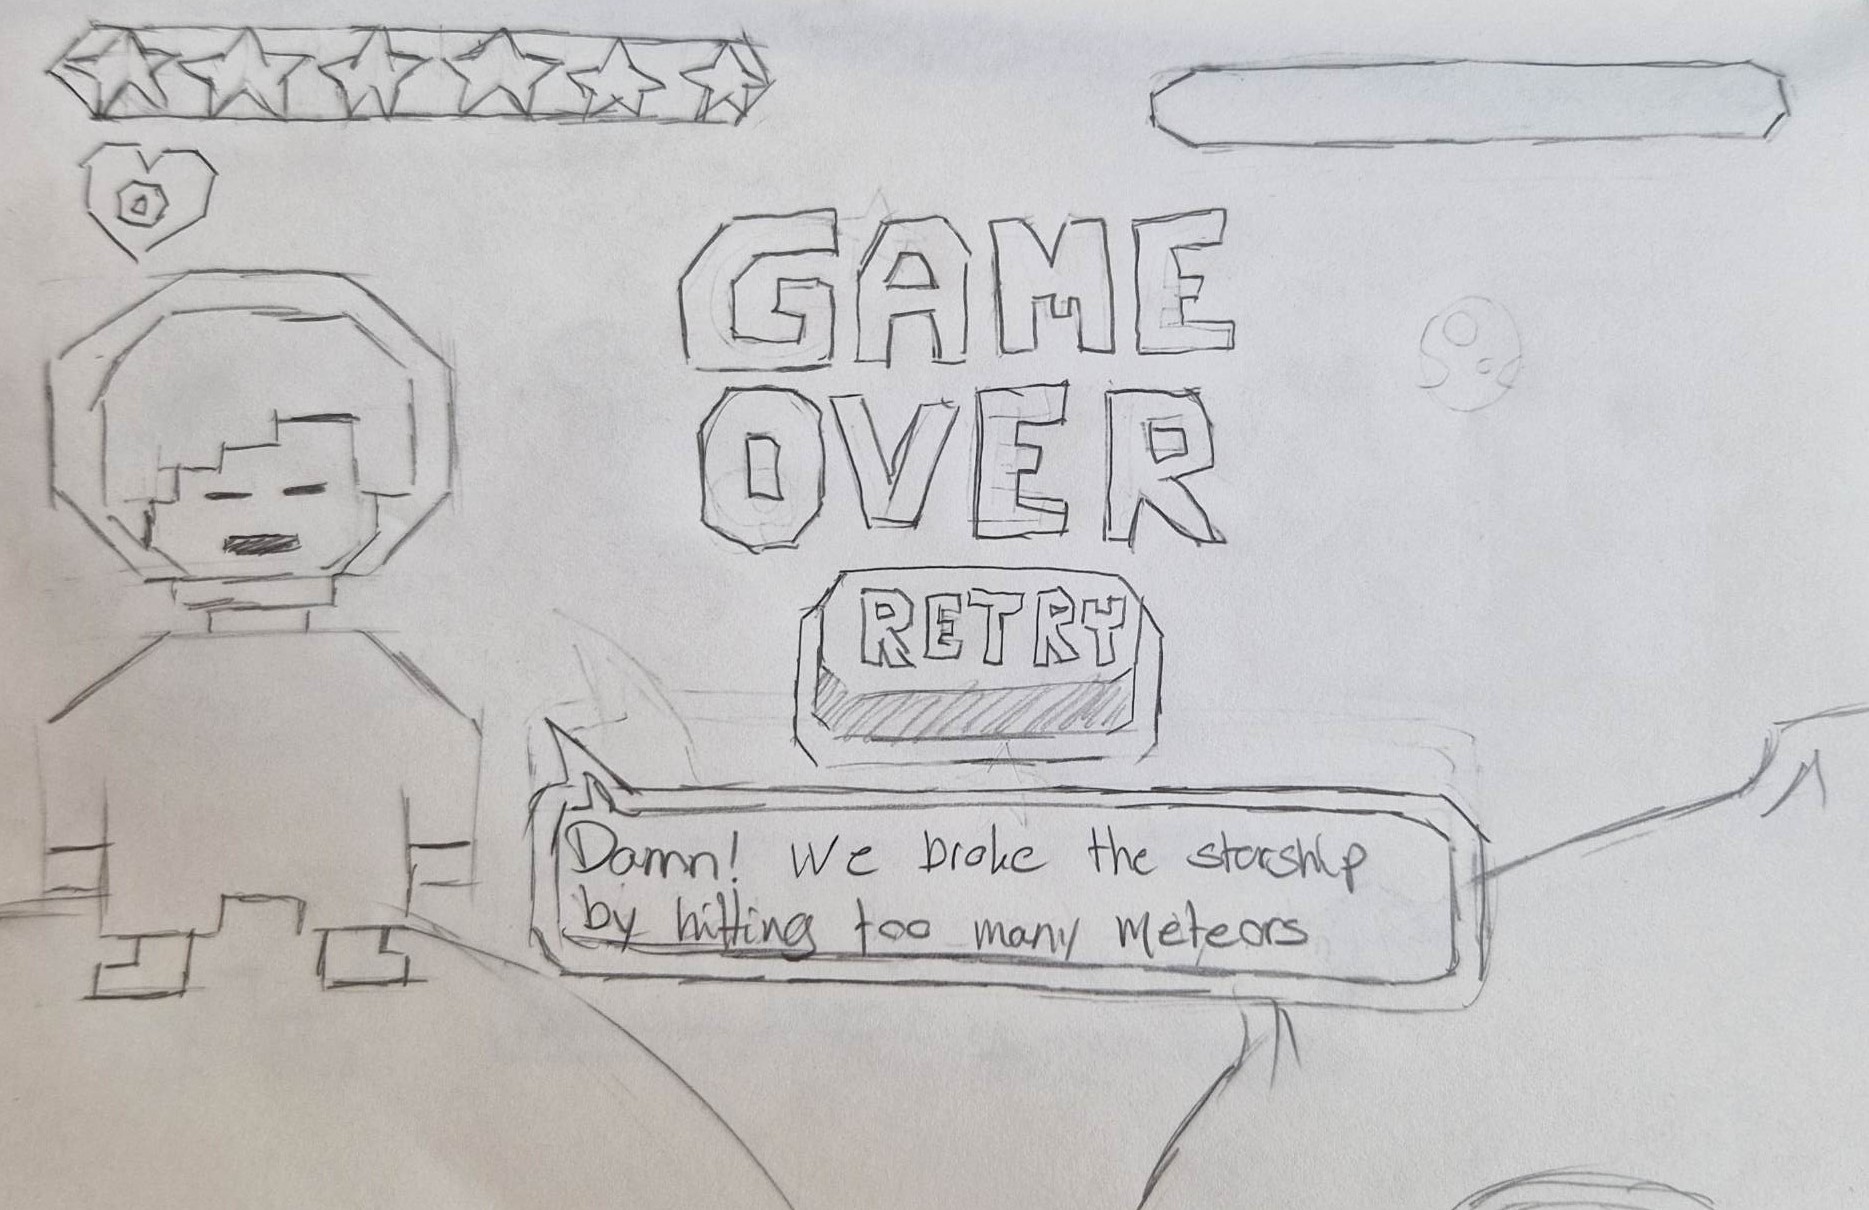 GAME
OVER
RETRY
Damn! We broke the starship
by hitting too many meteors